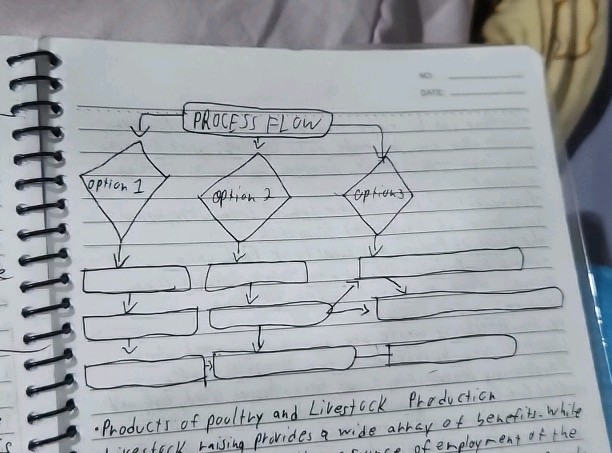 NO:
DATE:
PROCESS FLOW
option 1
option 2
option 3
• Products of poultry and Livestock Production
Livestock raising provides a wide array of benefits. while
of employment of the